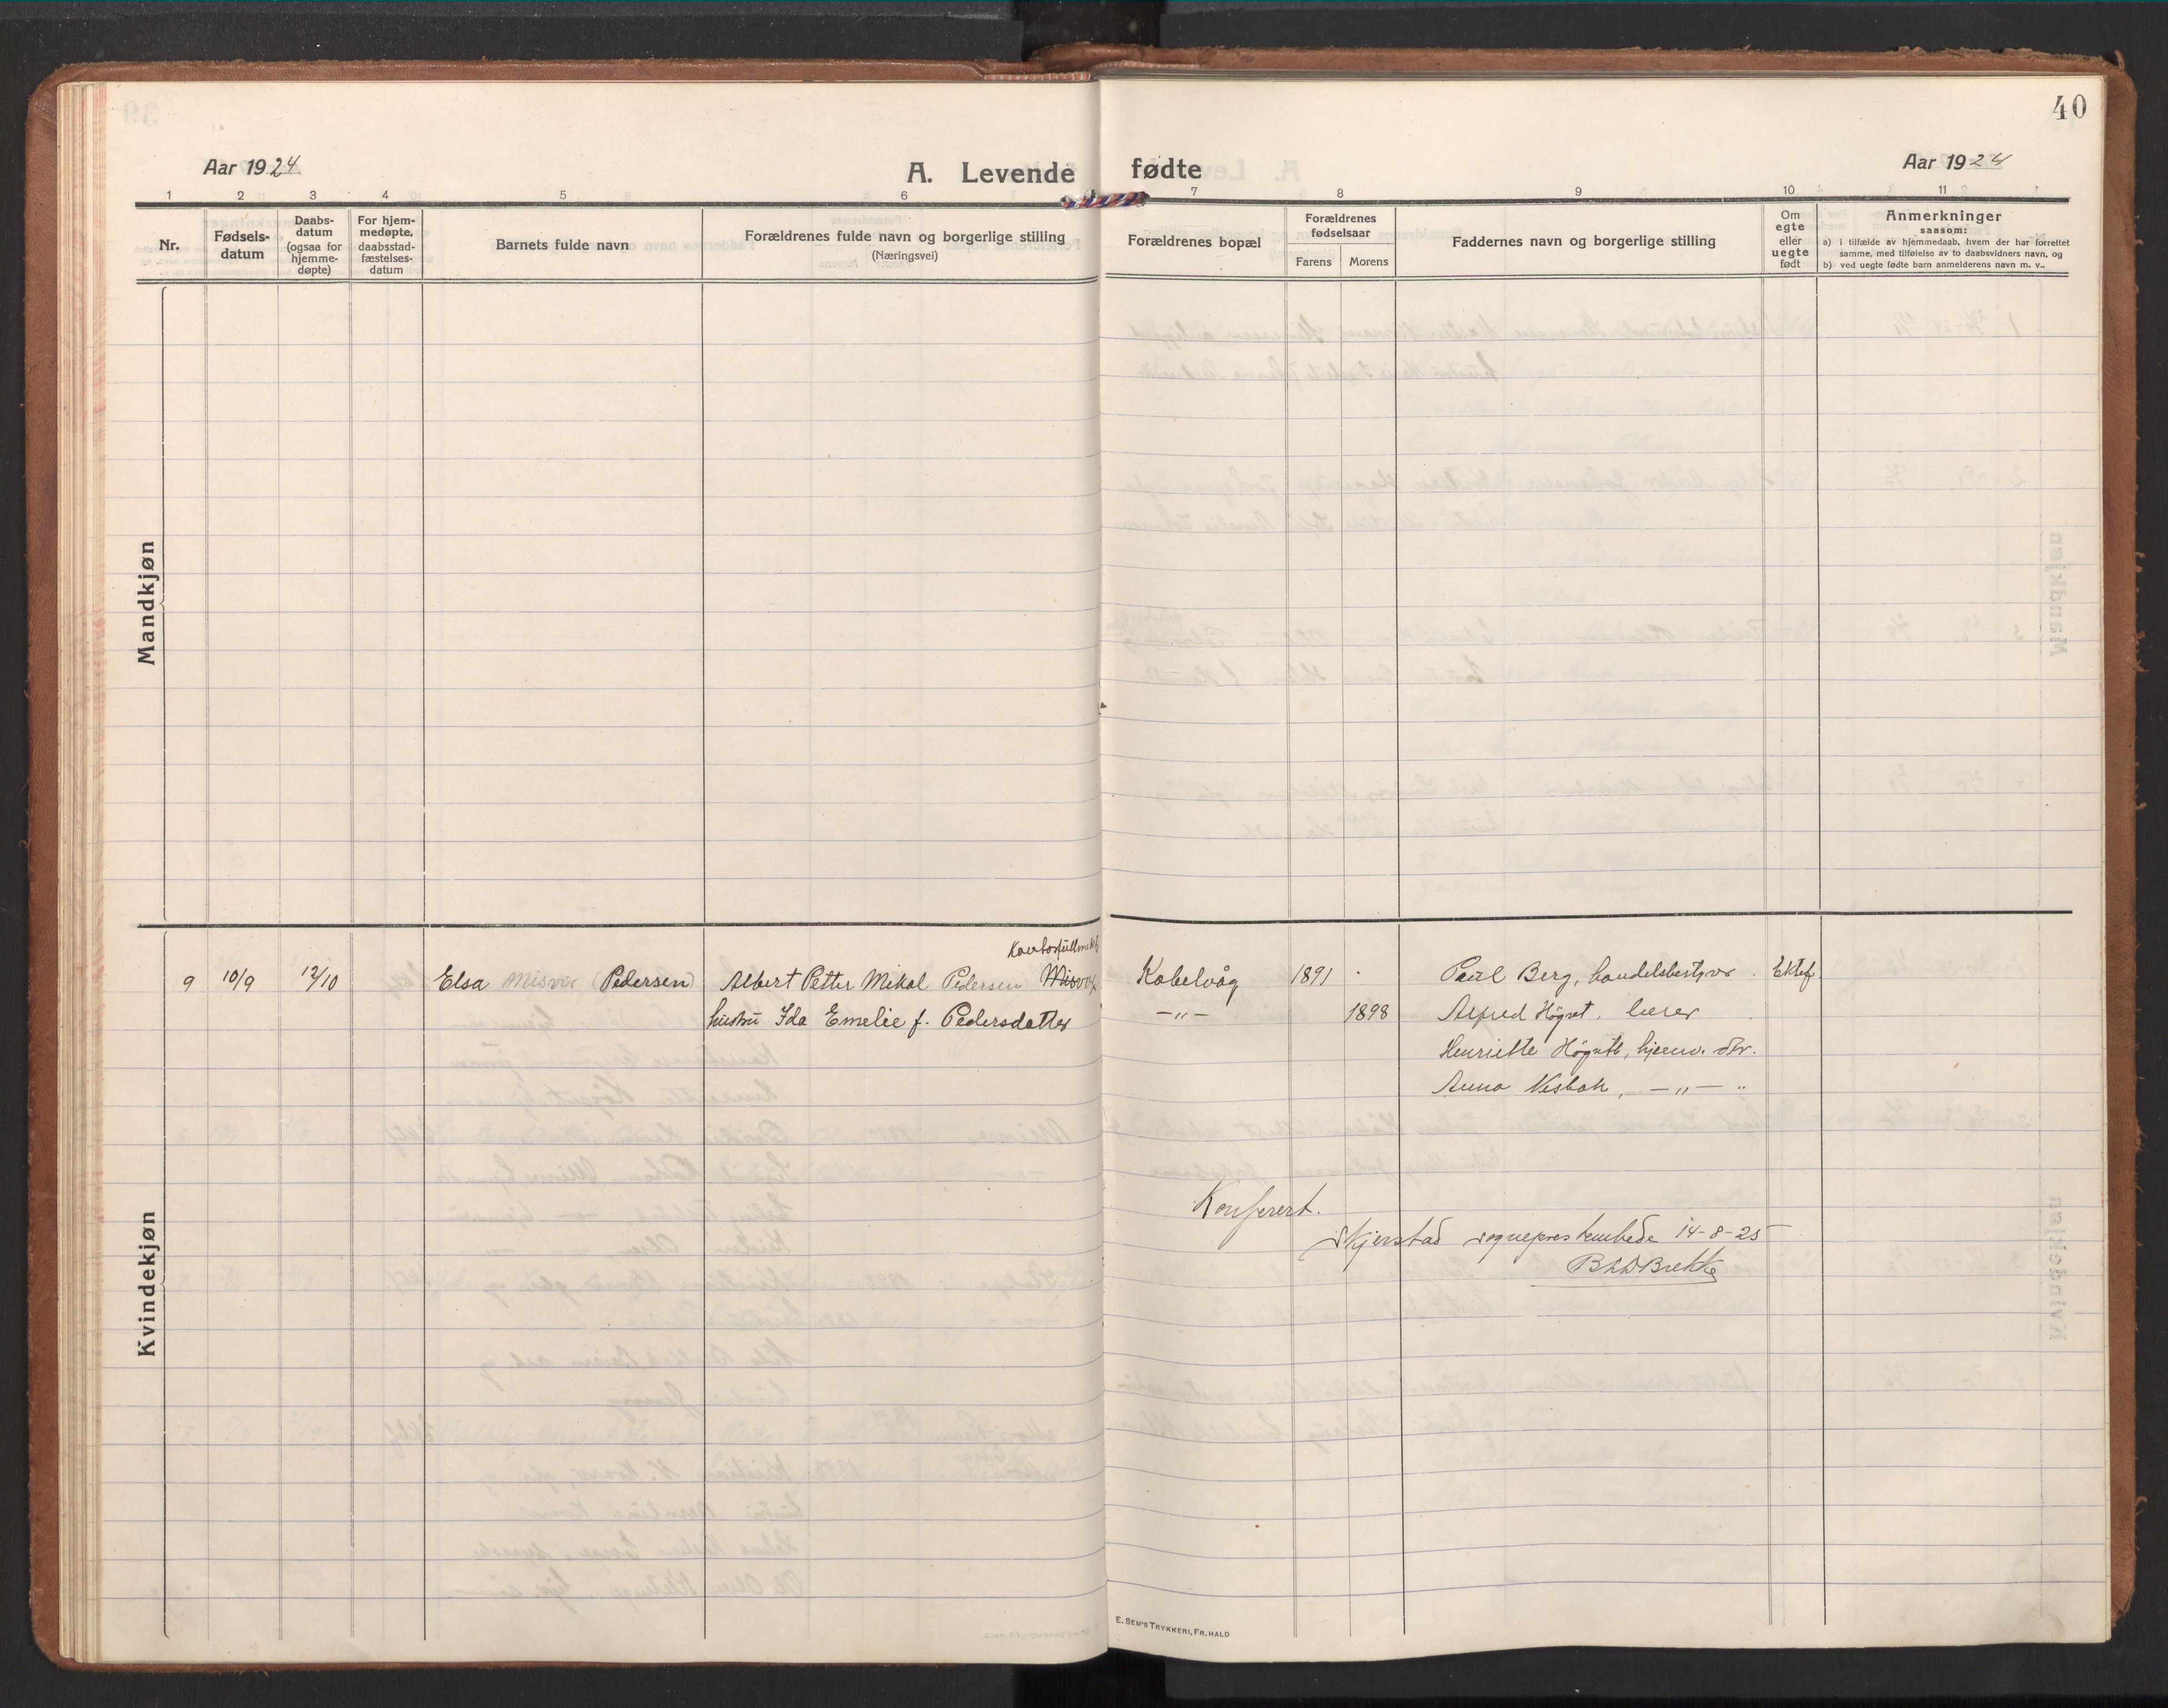 40
Aar 1924
A. Levende fødte
Aar 1924
1 2 3 4 5 6 7 8 9 10 11
Nr.
Fødsels-
datum
Daabs-
datum
(ogsaa for
hjemme-
døpte)
For hjem-
medøpte,
daabsstad-
fæstelses-
datum
Barnets fulde navn
Forældrenes fulde navn og borgerlige stilling
(Næringsvei)
Forældrenes bopæl
Forældrenes
fødselsaar
Farens Morens
Faddernes navn og borgerlige stilling
Om
egte
eller
uegte
født
Anmerkninger
saasom:
a) i tilfælde av hjemmedaab, hvem der har forrettet
samme, med tilføielse av to daabsvidners navn, og
b) ved uegte fødte barn anmelderens navn m. v..
Mandkjøn
Kvindekjøn
9 10/9 12/10 Elsa Misvær (Pedersen) Albert Petter Mikal Pedersen Misvær Kabelvåg 1891 Paul Berg, handelsbestyrer Ektef.
hustru Ida Emelie f. Pedersdatter —„— 1898 Alfred Høgset, lærer
Henriette Høgset, hjemv. dtr.
Anna Vesbak, —„— „
Konferert.
Skjerstad sogneprestembede 14-8-25
Brekke
E. SEM'S TRYKKERI, FR. HALD